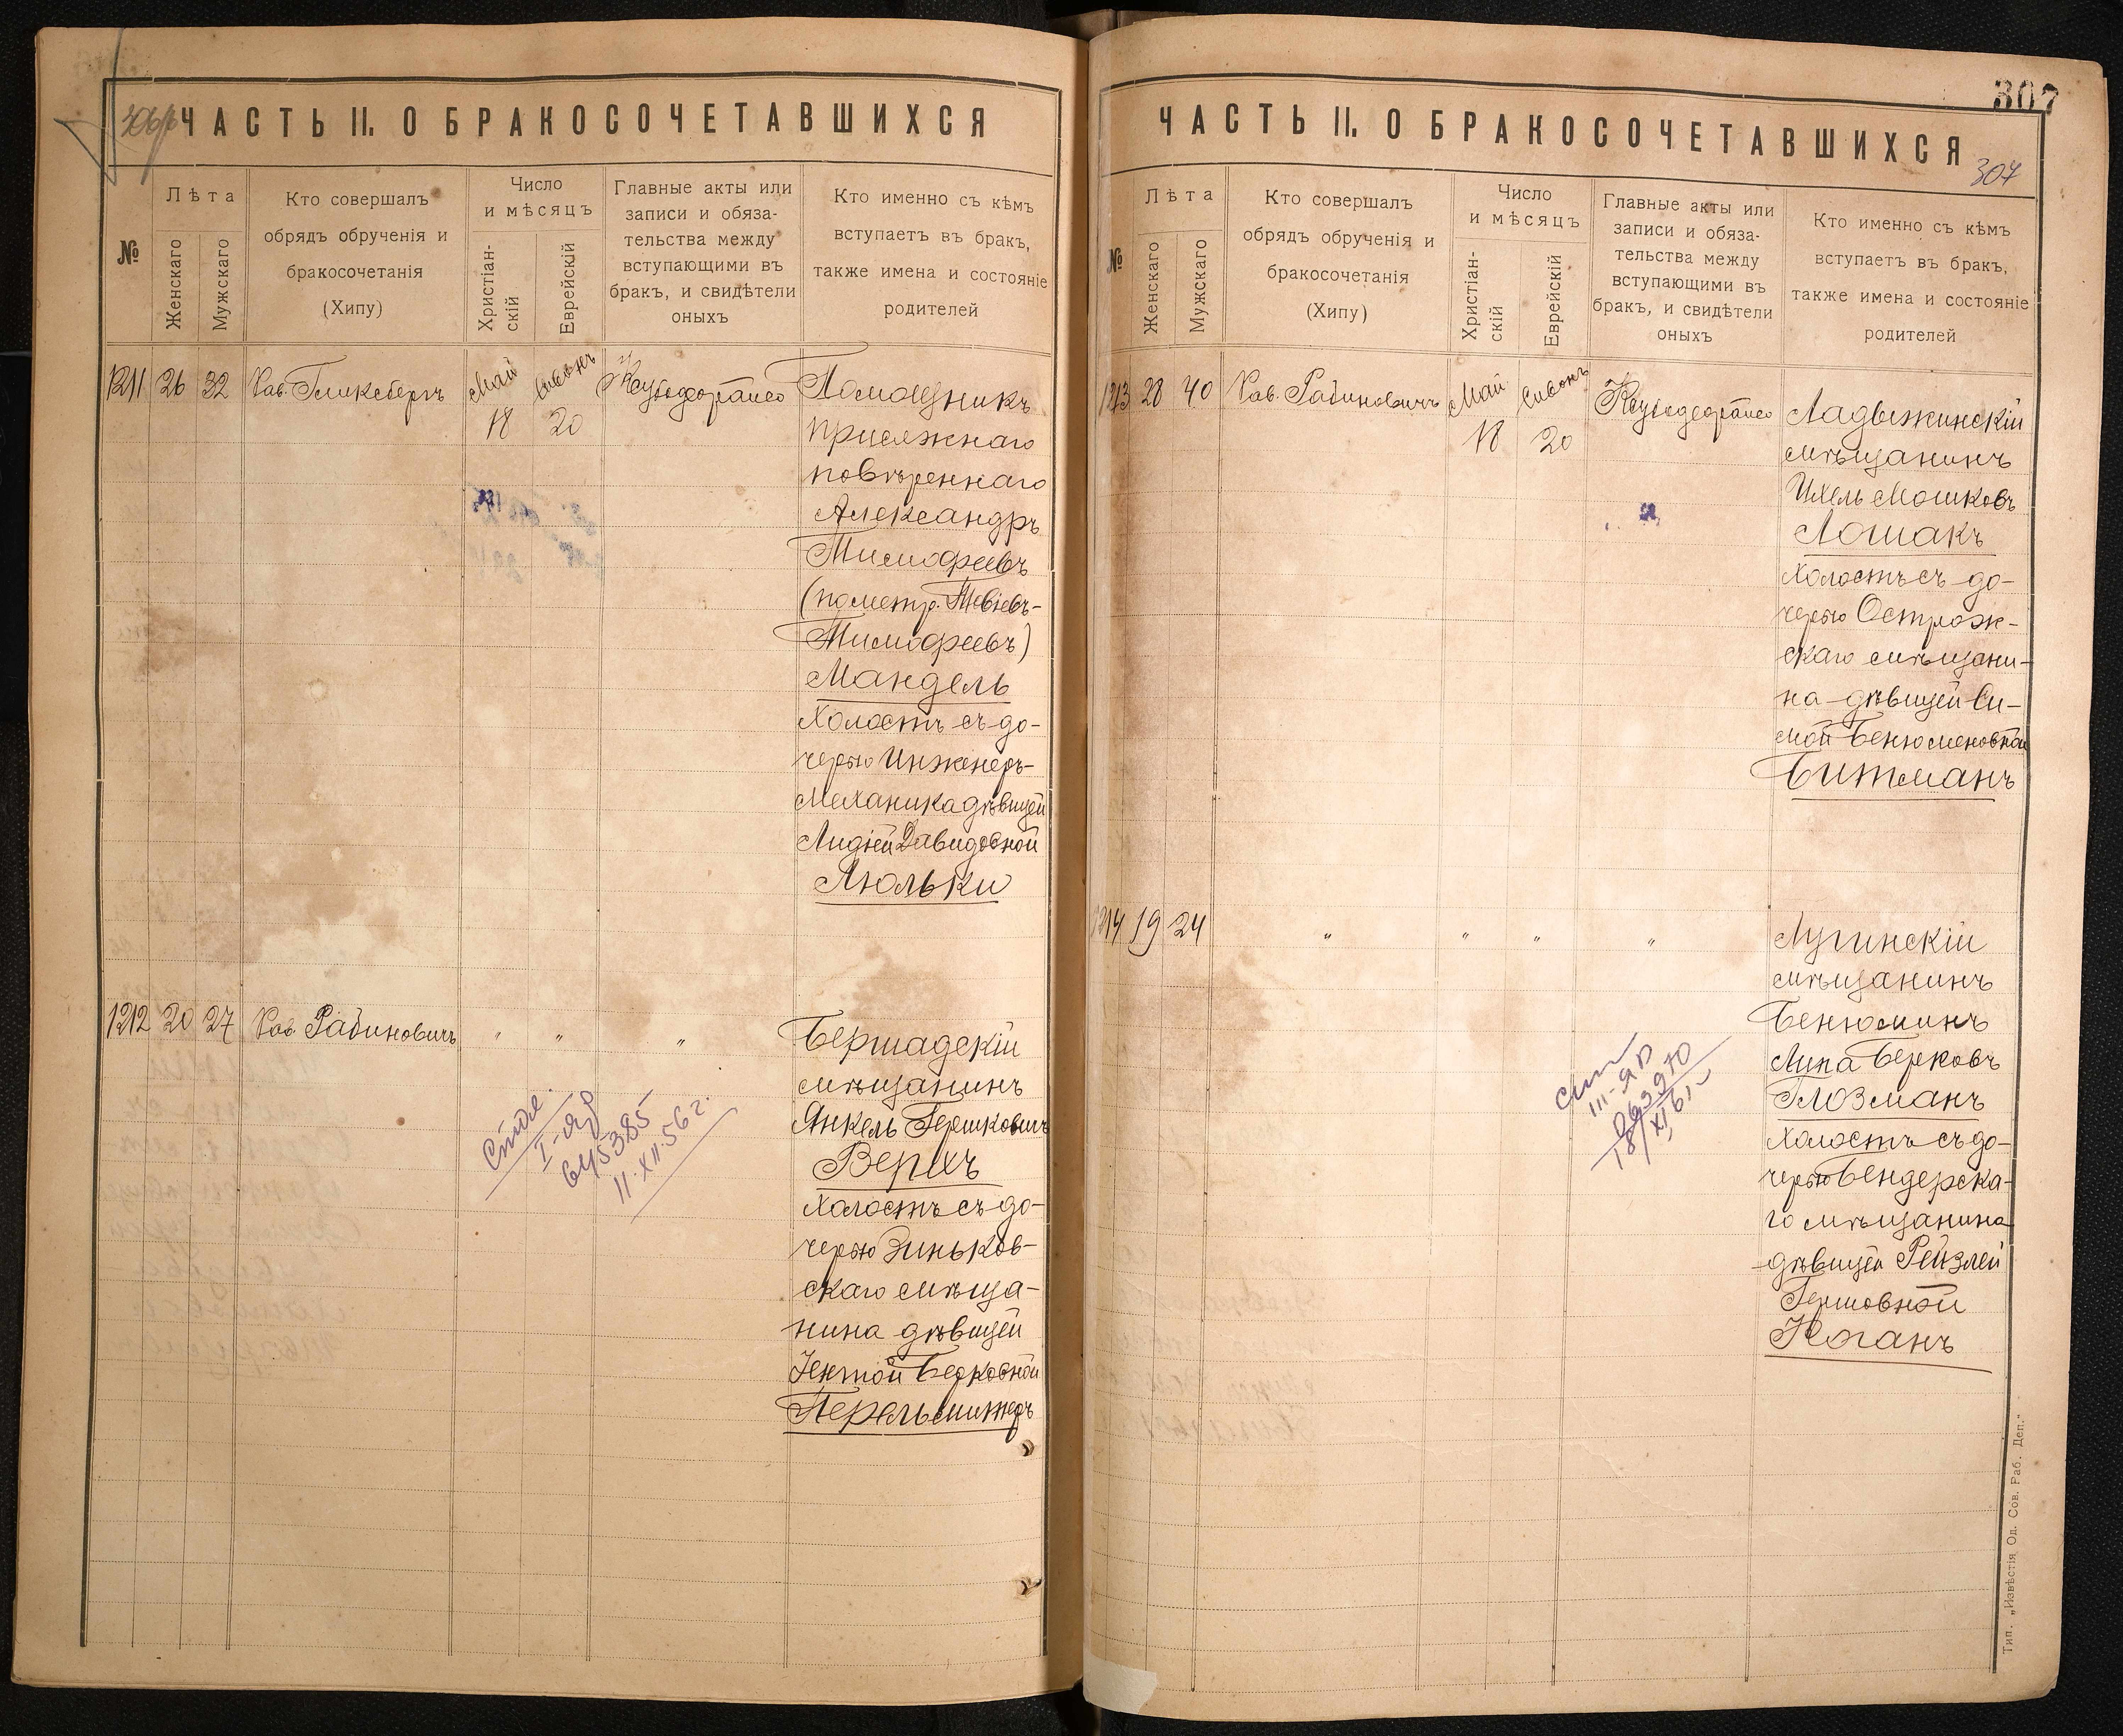 ЧАСТЬ II. О БРАКОСОЧЕТАВШИХСЯ
№
Лѣта
Женскаго
Мужскаго
Кто совершалъ
обрядъ обрученія и
бракосочетанія
(Хипу)
Число
и мѣсяцъ
Христіан-
скій
Еврейскій
Главные акты или
записи и обяза-
тельства между
вступающими въ
бракъ, и свидѣтели
оныхъ
Кто именно съ кѣмъ
вступаетъ въ бракъ,
также имена и состояніе
родителей
1211 26 32 Каз. Гликсбергъ Май 18 Сивонъ 20
Помощникъ
присяжнаго
повѣреннаго
Александръ
Тимофеевъ
(по метр. Тевіевъ-
Тимофеевъ)
Мандель
холостъ съ до-
черью Инженеръ-
Механика дѣвицей
Лидіей Давидовной
Люльки
1212 20 27 Каз. Рабиновичъ " " "
Бершадскій
мѣщанинъ
Янкель Гершковичъ
Верхъ
холостъ съ до-
черью Зиньков-
скаго мѣща-
нина дѣвицей
Іентой Берковной
Перельмитеръ
645385
11.XII.56 г.
307
ЧАСТЬ II. О БРАКОСОЧЕТАВШИХСЯ
307
№
Лѣта
Женскаго
Мужскаго
Кто совершалъ
обрядъ обрученія и
бракосочетанія
(Хипу)
Число
и мѣсяцъ
Христіан-
скій
Еврейскій
Главные акты или
записи и обяза-
тельства между
вступающими въ
бракъ, и свидѣтели
оныхъ
Кто именно съ кѣмъ
вступаетъ въ бракъ,
также имена и состояніе
родителей
1213 28 40 Каз. Рабиновичъ Май 18 Сивонъ 20
Ладыжинскій
мѣщанинъ
Ихель Мошковъ
Лошакъ
холостъ съ до-
черью Острож-
скаго мѣщани-
на дѣвицей Си-
мой Бенюменовной
Битманъ
1214 19 24 " " " "
Лугинскій
мѣщанинъ
Бенюминъ
Липа Берковъ
Глозманъ
холостъ съ до-
черью Бендерска-
го мѣщанина
дѣвицей Рейзлей
Гершовной
Коганъ
063970
18/XI 61
Тип. „Извѣстія Од. Сов. Раб. Деп."